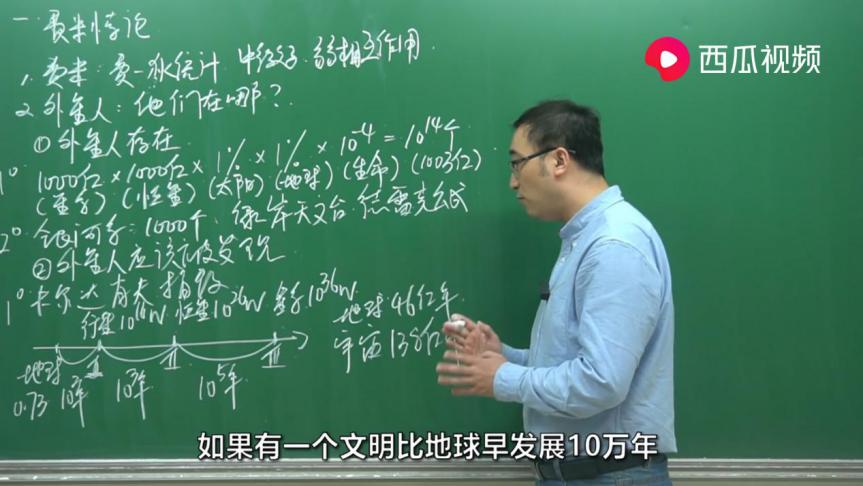 西瓜视频
一. 费米悖论
1. 费米: 费-狄统计 中微子 弱相互作用
2. 外星人: 他们在哪?
①外星人存在
1° 1000亿 × 1000亿 × 1% × 1% × 10⁻⁴ = 10¹⁴个
(星系) (恒星) (太阳) (地球) (生命) (100万亿)
2° 银河系: 1000个 绿岸天文台·德雷克公式
②外星人应该被发现
1° 卡尔达肖夫指数
行星10¹⁶W 恒星10²⁶W 星系10³⁶W
地球 46亿年
宇宙 138亿
地球 I II III
0.73 10²年 10³年 10⁵年
如果有一个文明比地球早发展10万年